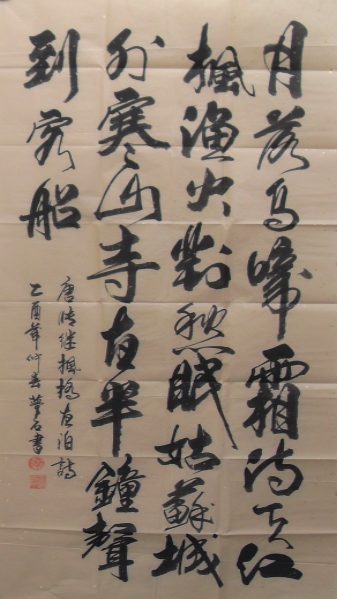 月落烏啼霜满天江
楓漁火對愁眠姑蘇城
外寒山寺夜半鐘聲
到客船
唐張继楓橋夜泊詩
乙酉年仲春 華石書